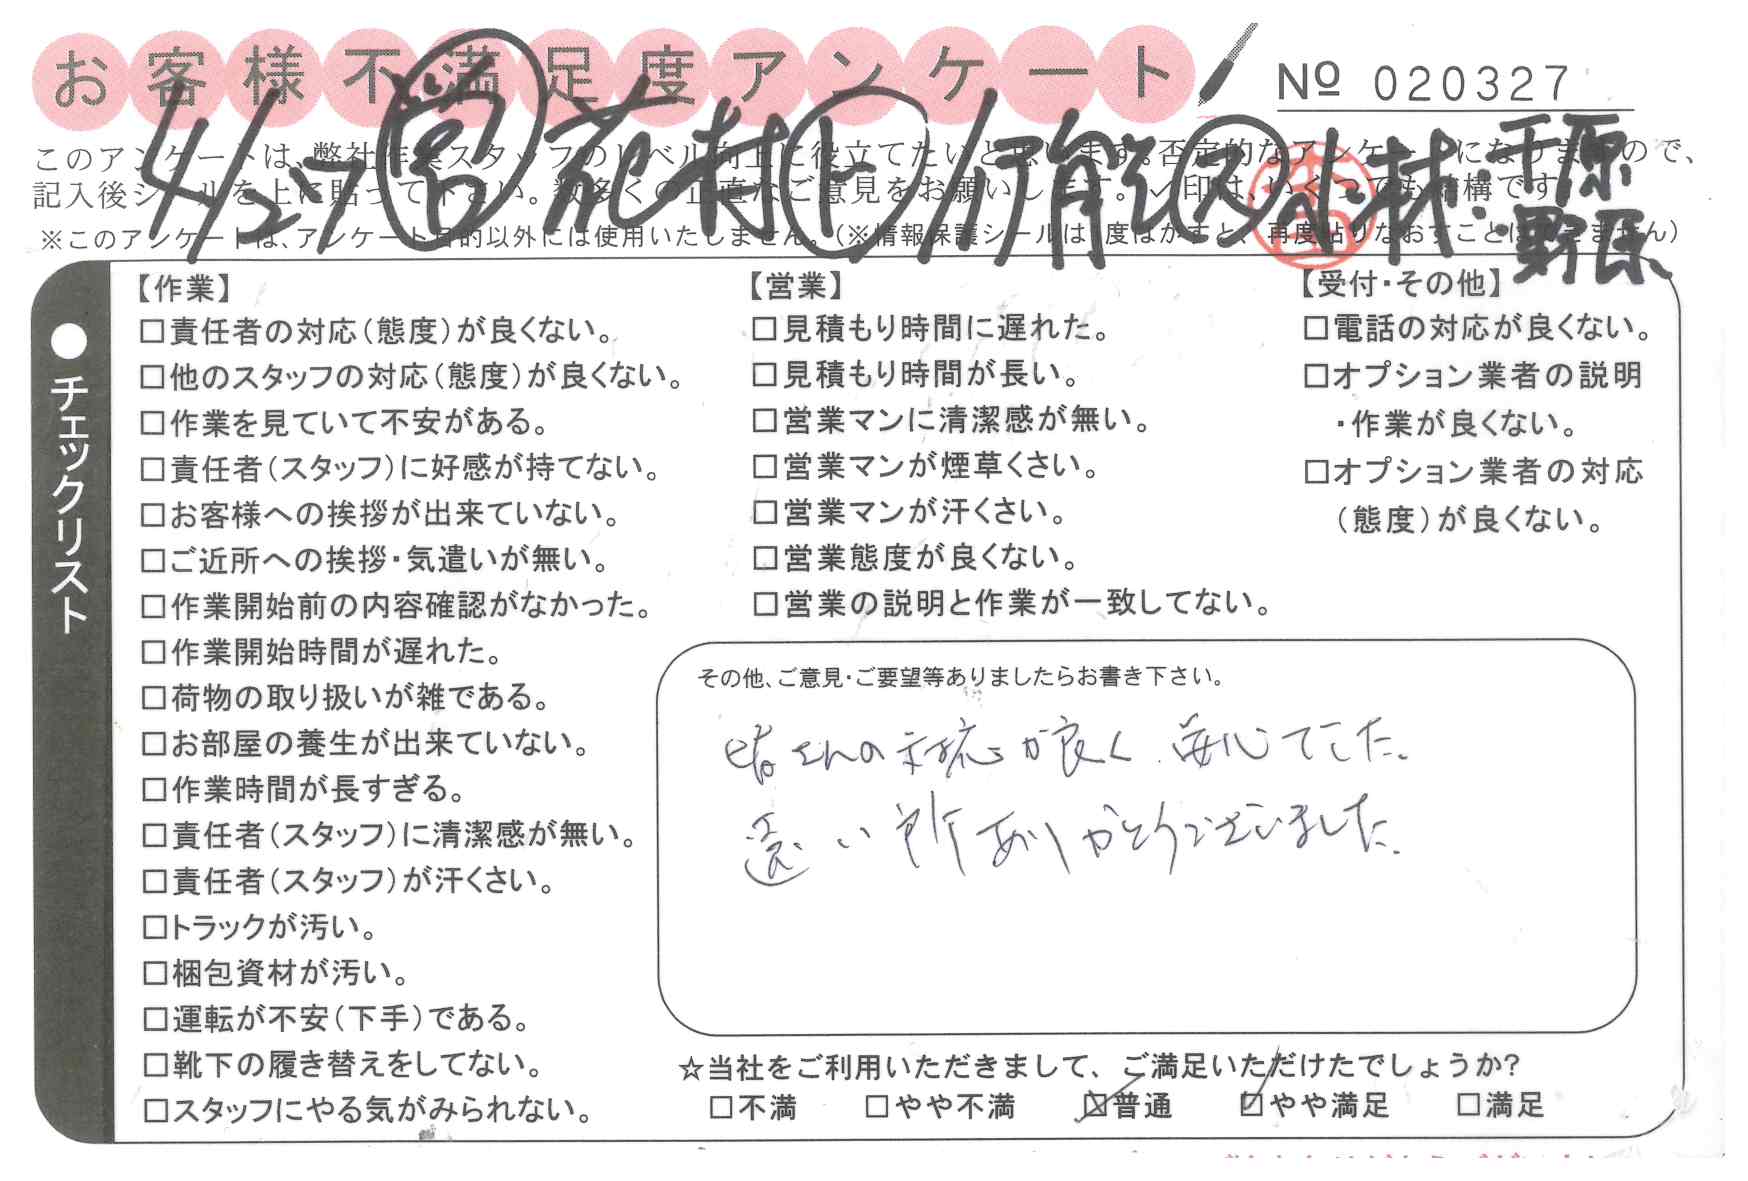 お客様不満足度アンケート
№ 020327
4/27 営 花村 ト 伊能 ス 木村・千原
・野原
このアンケートは、弊社作業スタッフのレベル向上に役立てたいと思います。否定的なアンケートになりますので、
記入後シールを上に貼って下さい。数多くの正直なご意見をお願いします。✓印は、いくつでも結構です
※このアンケートは、アンケート目的以外には使用いたしません。(※情報保護シールは1度はがすと、再度貼りなおすことはできません)
●チェックリスト
【作業】
□責任者の対応(態度)が良くない。
□他のスタッフの対応(態度)が良くない。
□作業を見ていて不安がある。
□責任者(スタッフ)に好感が持てない。
□お客様への挨拶が出来ていない。
□ご近所への挨拶・気遣いが無い。
□作業開始前の内容確認がなかった。
□作業開始時間が遅れた。
□荷物の取り扱いが雑である。
□お部屋の養生が出来ていない。
□作業時間が長すぎる。
□責任者(スタッフ)に清潔感が無い。
□責任者(スタッフ)が汗くさい。
□トラックが汚い。
□梱包資材が汚い。
□運転が不安(下手)である。
□靴下の履き替えをしてない。
□スタッフにやる気がみられない。
【営業】
□見積もり時間に遅れた。
□見積もり時間が長い。
□営業マンに清潔感が無い。
□営業マンが煙草くさい。
□営業マンが汗くさい。
□営業態度が良くない。
□営業の説明と作業が一致してない。
【受付・その他】
□電話の対応が良くない。
□オプション業者の説明
・作業が良くない。
□オプション業者の対応
(態度)が良くない。
その他、ご意見・ご要望等ありましたらお書き下さい。
皆さんの対応が良く 安心でした。
遠い所ありがとうございました。
☆当社をご利用いただきまして、ご満足いただけたでしょうか?
□不満 □やや不満 ☒普通 ☑やや満足 □満足